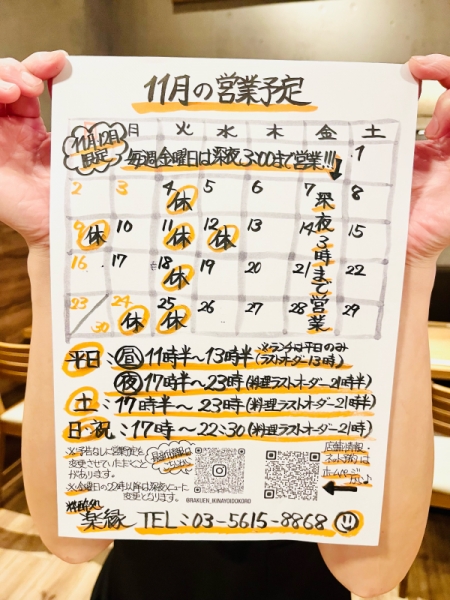 11月の営業予定
11月12月
限定
月 火 水 木 金 土
毎週金曜日は深夜3:00まで営業!!!
1
2 3 4 休 5 6 7 8
9 休 10 11 休 12 休 13 14 15
16 17 18 休 19 20 21 22
23 24 休 25 休 26 27 28 29
30
深夜3時まで営業
平日:昼 11時半〜13時半 ※ランチは平日のみ
(ラストオーダー13時)
夜 17時半〜23時(料理ラストオーダー21時半)
土:17時半〜23時(料理ラストオーダー21時半)
日・祝:17時〜22:30(料理ラストオーダー21時)
※予告なしに営業予定を
変更させていただくことが
あります。
※金曜日の22時以降は深夜メニューに
変更となります。
@RAKUEN_IKINAYOIDOKORO
店舗情報・
ホームページ
楽縁 TEL:03-5615-8868